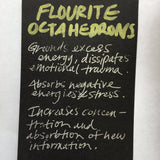 FLOURITE
OCTAHEDRONS
Grounds excess
energy, dissipates
emotional trauma.
Absorbs negative
energies & stress.
Increases concen-
tration and
absorbtion of new
information.